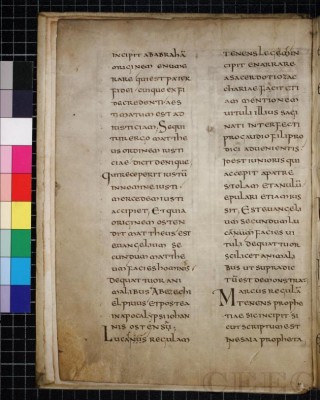 incipit ab abrahã
originem enume
rare qui est pater
fidei · cuique ex fi
de credenti aes
timatum est ad
iustitiam; Sequi
tur ergo matthe
us ordinem iusti
ciae · dicit denique
qui receperit iustũ
in nomine iusti ·
mercedem iusti
accipiet; Et qua
originem osten
dit mattheus est
euangelium se
cundum matthe
um facies hominis,
de quattuor ani
malibus ab ezechi
el prius et postea
in apocalypsi iohan
nis ostensũ;
Lucanus regulam
tenens legem in
cipit enarrare
a sacerdotio zac
chariae facit eti
am mentionem
uituli illius sagi
nati interfecti
pro gaudio filii pro
digi aduenientis
id est iunioris qui
accepit a patre
stolam et anulũ
epulari etiam ius
sit · Est euangeli
um secundum lu
canum facies ui
tuli de quattuor
scilicet animali
bus ut supra dic
tũ est demonstrat
Marcus regulã
tenens prophe
tiae sic incipit si
cut scriptum est
in esaia propheta